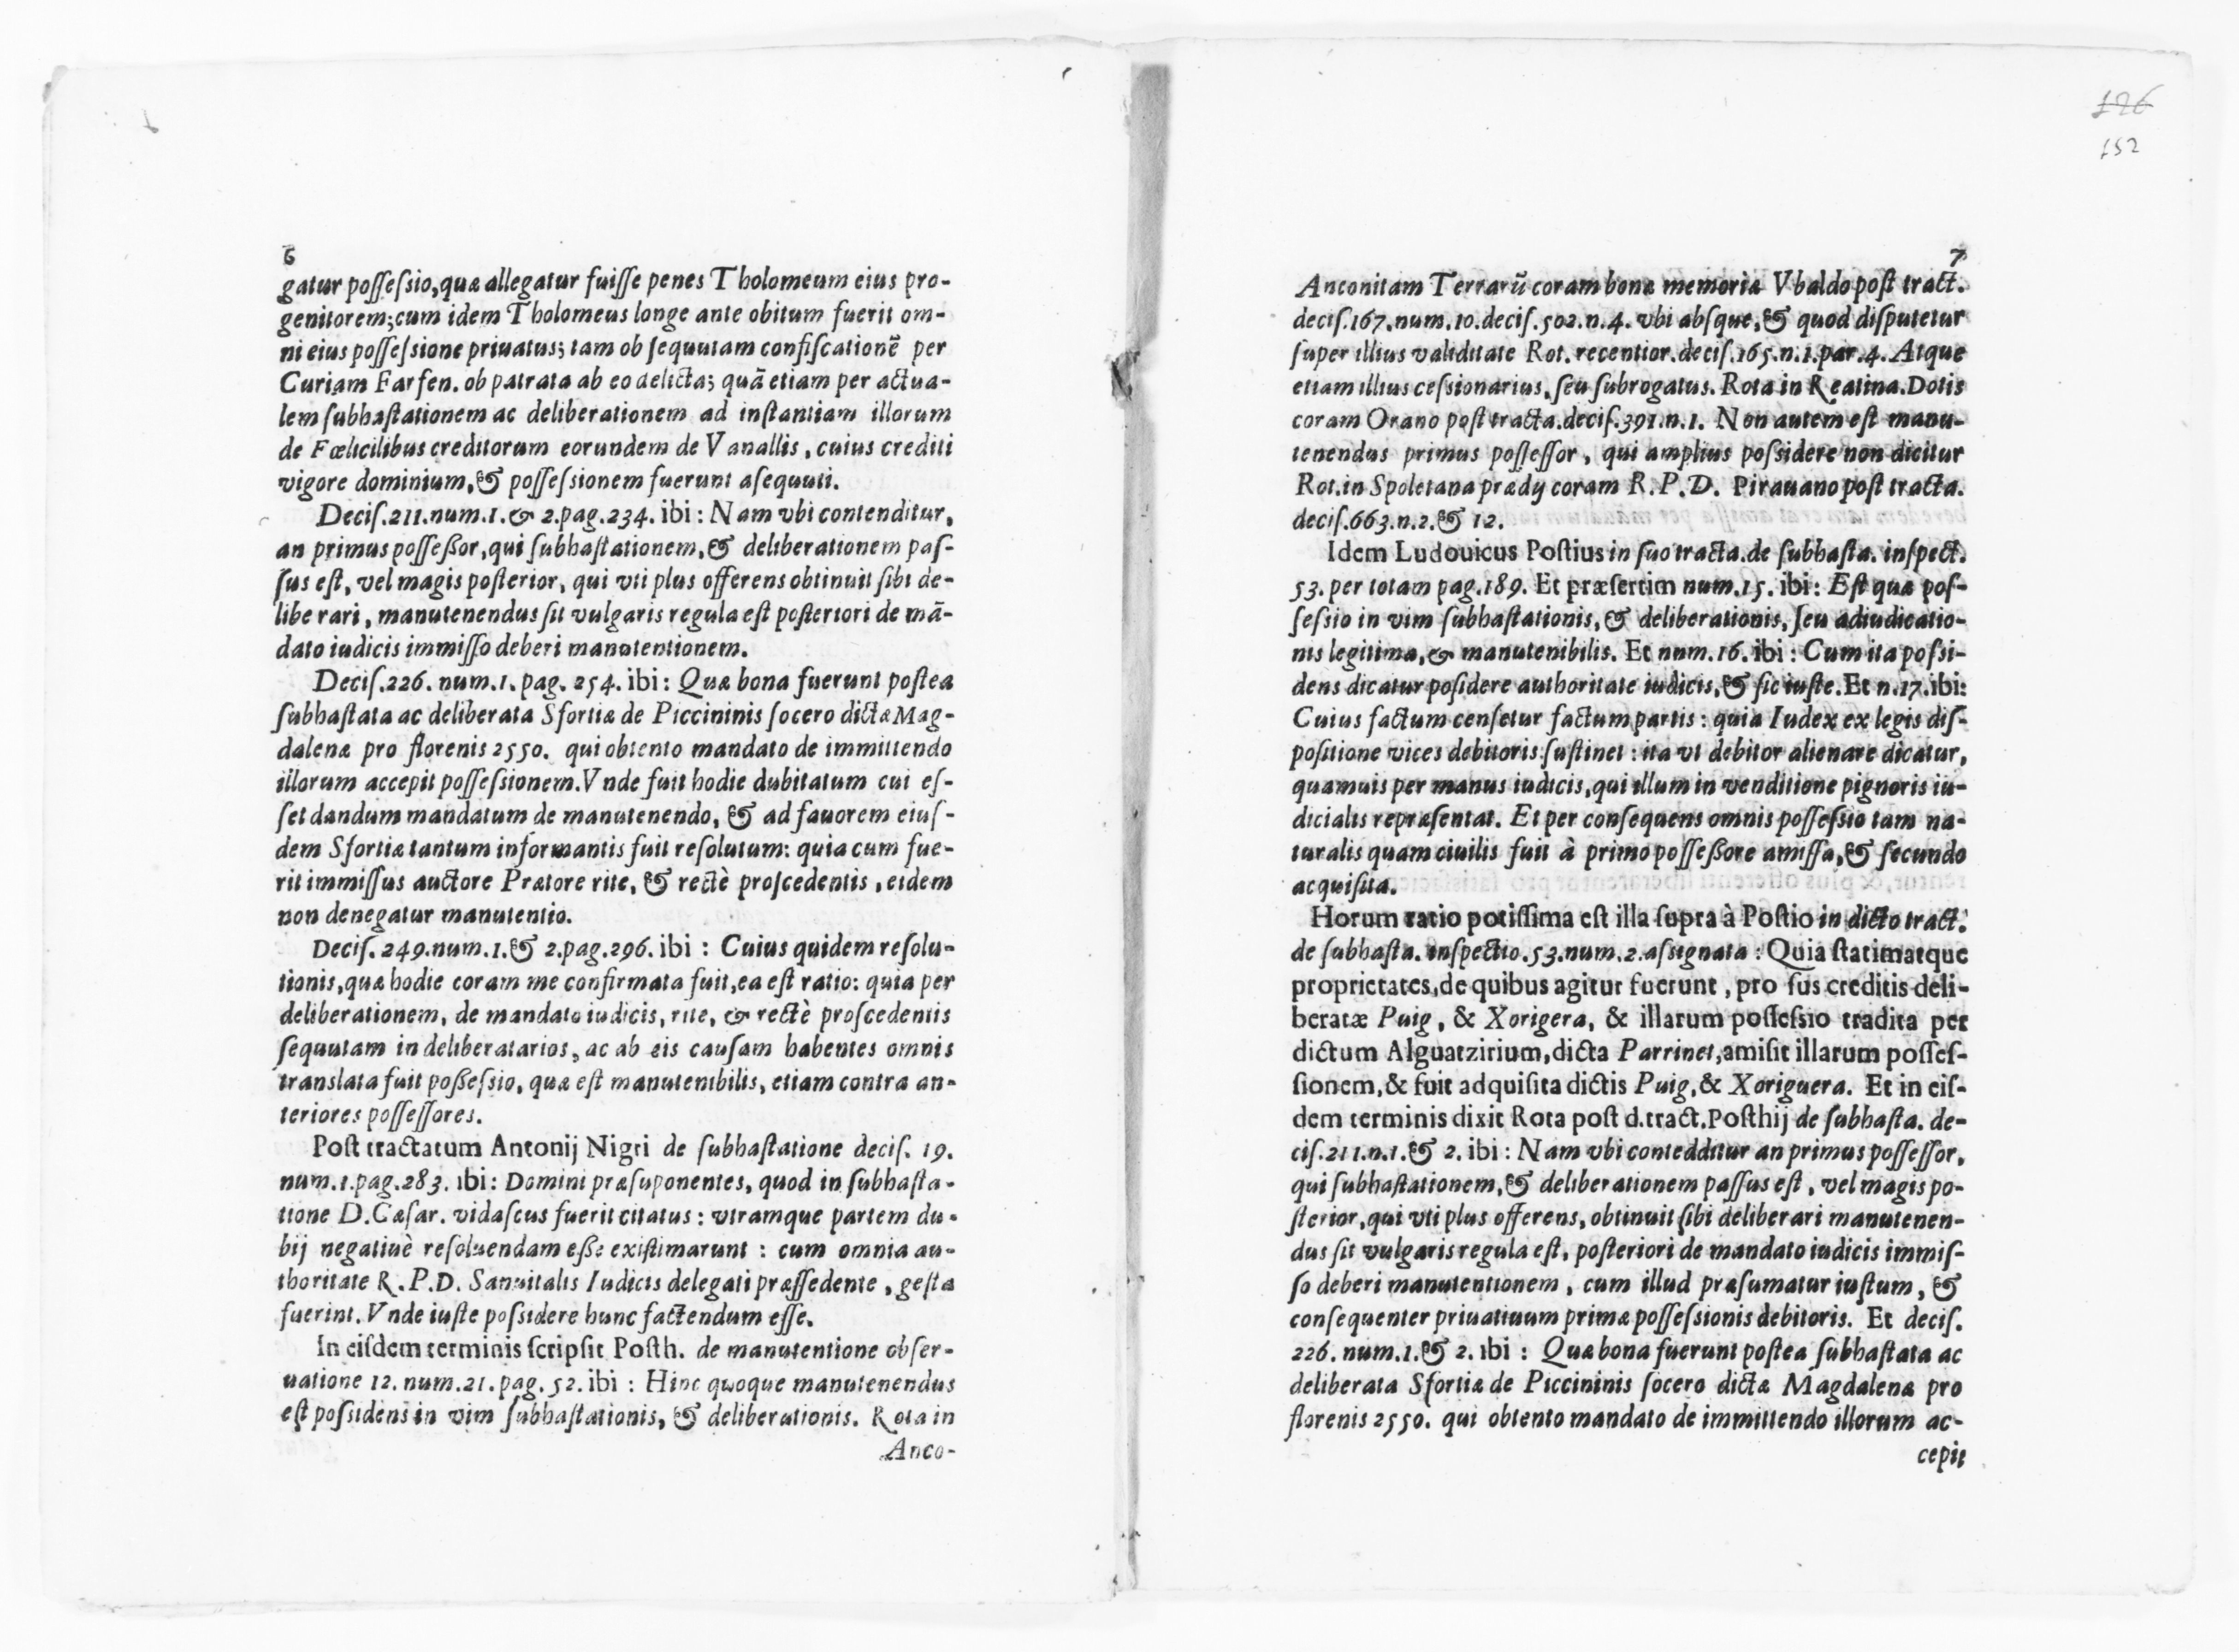 6
gatur poſſeſsio,quæ allegatur fuiſſe penes Tholomeum eius pro-
genitorem;cum idem Tholomeus longe ante obitum fuerit om-
ni eius poſſeſsione priuatus; tam ob ſequutam confiſcationẽ per
Curiam Farfen. ob patrata ab eo delicta; quã etiam per actua-
lem ſubhaſtationem ac deliberationem ad inſtantiam illorum
de Fœlicilibus creditorum eorundem de Vanallis, cuius crediti
vigore dominium,& poſſeſsionem fuerunt aſequuti.
Deciſ.211.num.1.& 2.pag.234. ibi: Nam vbi contenditur,
an primus poſſeßor,qui ſubhaſtationem,& deliberationem paſ-
ſus eſt, vel magis poſterior, qui vti plus offerens obtinuit ſibi de-
libe rari, manutenendus ſit vulgaris regula eſt poſteriori de mã-
dato iudicis immiſſo deberi manutentionem.
Deciſ.226. num.1. pag. 254. ibi: Quæ bona fuerunt poſtea
ſubhaſtata ac deliberata Sfortiæ de Piccininis ſocero dictæ Mag-
dalenæ pro florenis 2550. qui obtento mandato de immittendo
illorum accepit poſſeſsionem.Vnde fuit hodie dubitatum cui eſ-
ſet dandum mandatum de manutenendo, & ad fauorem eiuſ-
dem Sfortiæ tantum informantis fuit reſolutum: quia cum fue-
rit immiſſus auctore Prætore rite, & rectè proſcedentis, eidem
non denegatur manutentio.
Deciſ. 249.num.1.& 2.pag.296. ibi : Cuius quidem reſolu-
tionis,quæ hodie coram me confirmata fuit,ea eſt ratio: quia per
deliberationem, de mandato iudicis, rite, & rectè proſcedentis
ſequutam in deliberatarios, ac ab eis cauſam habentes omnis
translata fuit poßeſsio, quæ eſt manutenibilis, etiam contra an-
teriores poſſeſſores.
Poſt tractatum Antonij Nigri de ſubhaſtatione deciſ. 19.
num.1.pag.283. ibi: Domini præſuponentes, quod in ſubhaſta-
tione D.Cæſar. vidaſcus fuerit citatus : vtramque partem du-
bij negatiuè reſoluendam eße exiſtimarunt : cum omnia au-
thoritate R.P.D. Sanuitalis Iudicis delegati præſſedente, geſta
fuerint. Vnde iuſte poſsidere hunc factendum eſſe.
In eiſdem terminis ſcripſit Poſth. de manutentione obſer-
uatione 12. num.21. pag. 52. ibi : Hinc quoque manutenendus
eſt poſsidens in vim ſubhaſtationis, & deliberationis. Rota in
Anco-
126
152
7
Anconitam Terrarũ coram bonæ memoriæ Vbaldo poſt tract.
deciſ.167.num.10.deciſ.502.n.4. vbi abſque,& quod diſputetur
ſuper illius validitate Rot. recentior.deciſ.165.n.1.par.4. Atque
etiam illius ceſsionarius, ſeu ſubrogatus. Rota in Reatina.Dotis
coram Orano poſt tracta.deciſ.391.n.1. Non autem eſt manu-
tenendus primus poſſeſſor, qui amplius poſsidere non dicitur
Rot.in Spoletana prædij coram R.P.D. Pirauano poſt tracta.
deciſ.663.n.2.& 12.
Idem Ludouicus Poſtius in ſuo tracta.de ſubhaſta. inſpect.
53. per totam pag.189. Et præſertim num.15. ibi: Eſt quæ poſ-
ſeſsio in vim ſubhaſtationis,& deliberationis, ſeu adiudicatio-
nis legitima,& manutenibilis. Et num.16. ibi : Cum ita poſsi-
dens dicatur poſidere authoritate iudicis,& ſic iuſte.Et n.17.ibi:
Cuius factum cenſetur factum partis : quia Iudex ex legis diſ-
poſitione vices debitoris ſuſtinet : ita vt debitor alienare dicatur,
quamuis per manus iudicis,qui illum in venditione pignoris iu-
dicialis repræſentat. Et per conſequens omnis poſſeſsio tam na-
turalis quam ciuilis fuit à primo poſſeßore amiſſa,& ſecundo
acquiſita.
Horum ratio potiſſima eſt illa ſupra à Poſtio in dicto tract.
de ſubhaſta. inſpectio.53.num.2.aſsignata : Quia ſtatimatque
proprietates,de quibus agitur fuerunt, pro ſus creditis deli-
beratæ Puig, & Xorigera, & illarum poſſeſsio tradita per
dictum Alguatzirium,dicta Parrinet,amiſit illarum poſſeſ-
ſionem,& fuit adquiſita dictis Puig,& Xoriguera. Et in eiſ-
dem terminis dixit Rota poſt d.tract.Poſthij de ſubhaſta. de-
ciſ.211.n.1.& 2. ibi : Nam vbi contedditur an primus poſſeſſor,
qui ſubhaſtationem,& deliberationem paſſus eſt, vel magis po-
ſterior,qui vti plus offerens, obtinuit ſibi deliberari manutenen-
dus ſit vulgaris regula eſt, poſteriori de mandato iudicis immiſ-
ſo deberi manutentionem, cum illud præſumatur iuſtum, &
conſequenter priuatiuum primæ poſſeſsionis debitoris. Et deciſ.
226. num.1.& 2. ibi : Quæ bona fuerunt poſtea ſubhaſtata ac
deliberata Sfortiæ de Piccininis ſocero dictæ Magdalenæ pro
florenis 2550. qui obtento mandato de immittendo illorum ac-
cepit